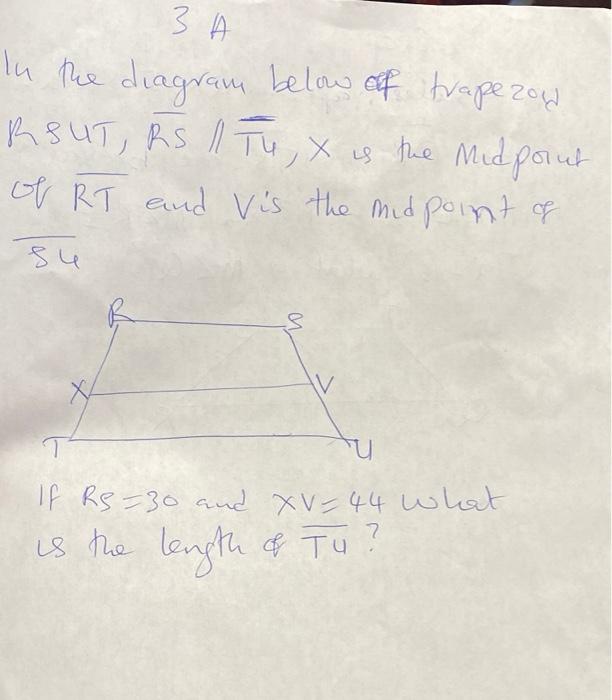 3 A
In the diagram below of trapezoid
RSUT, RS // TU, X is the Midpoint
of RT and V is the midpoint of
SU
R S
X V
T U
If RS = 30 and XV = 44 what
is the length of TU?